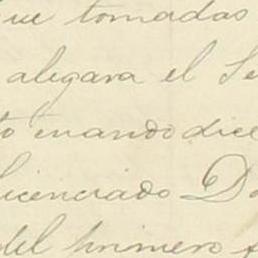 que tomadas
alegara el Se
to cuando dice
licenciado Do
del primero